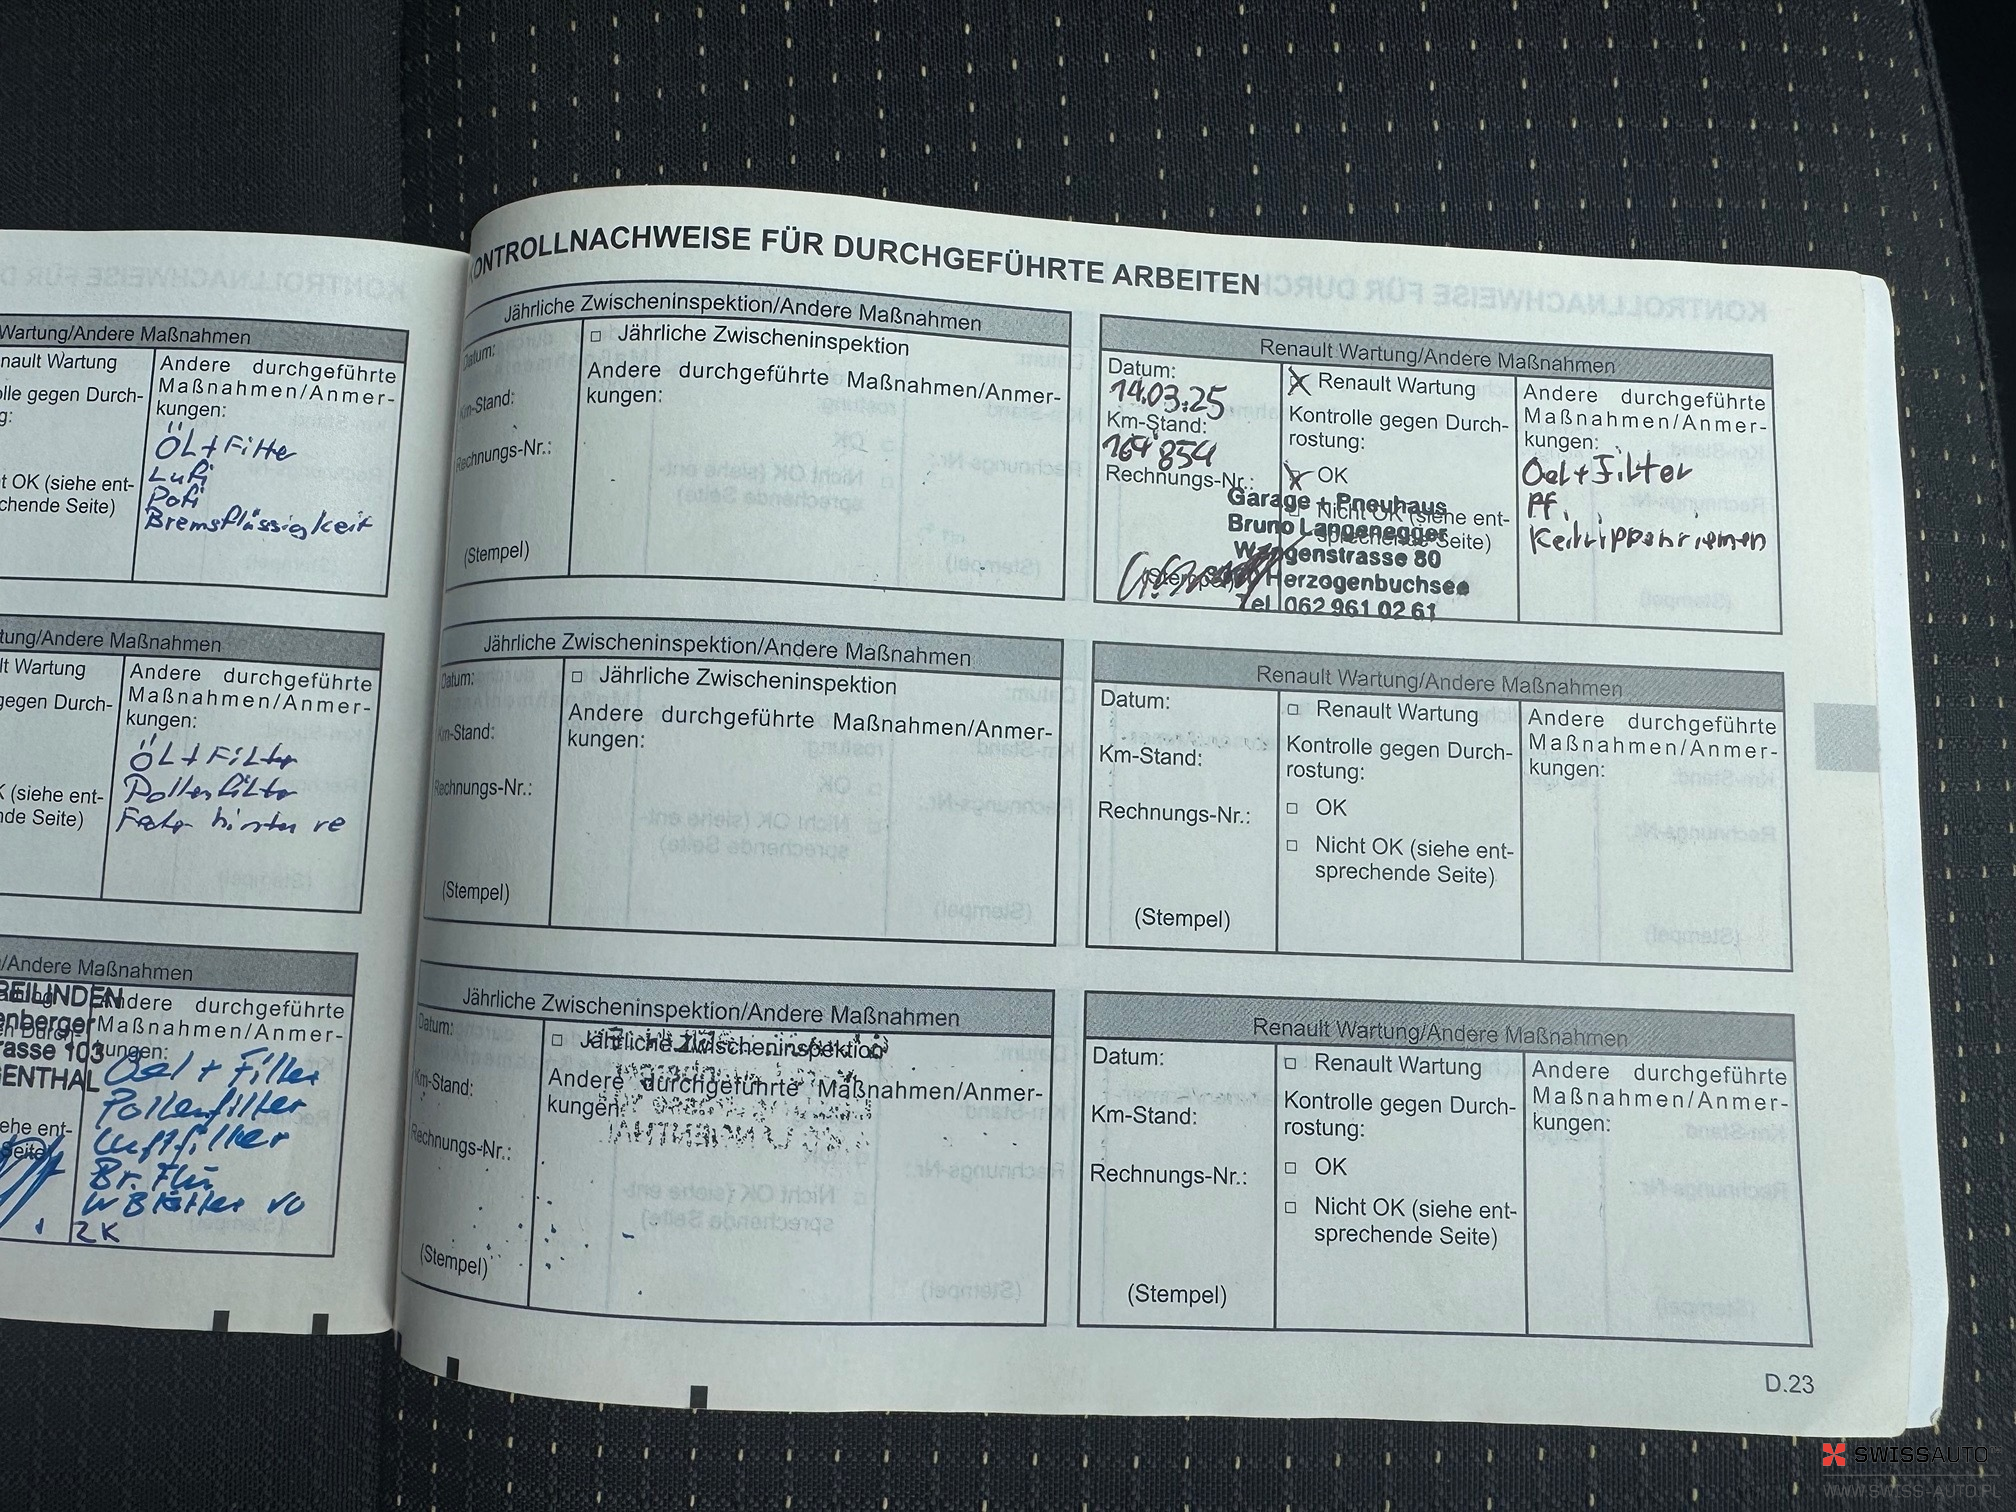 Wartung/Andere Maßnahmen
nault Wartung
lle gegen Durch-
g:
t OK (siehe ent-
chende Seite)
Andere durchgeführte
Maßnahmen/Anmer-
kungen:
ÖL + Filter
Lufi
Pofi
Bremsflüssigkeit
tung/Andere Maßnahmen
lt Wartung
gegen Durch-
K (siehe ent-
nde Seite)
Andere durchgeführte
Maßnahmen/Anmer-
kungen:
ÖL + Filter
Pollenfilter
hinten re
/Andere Maßnahmen
REILINDEN
enberger
rasse 103
GENTHAL
ehe ent-
Seite)
Andere durchgeführte
Maßnahmen/Anmer-
kungen:
Oel + Filter
Pollenfilter
Luftfilter
Br. Flü
W Blätter vo
2K
KONTROLLNACHWEISE FÜR DURCHGEFÜHRTE ARBEITEN
Jährliche Zwischeninspektion/Andere Maßnahmen
Datum:
Km-Stand:
Rechnungs-Nr.:
(Stempel)
□ Jährliche Zwischeninspektion
Andere durchgeführte Maßnahmen/Anmer-
kungen:
Renault Wartung/Andere Maßnahmen
Datum:
14.03.25
Km-Stand:
164'854
Rechnungs-Nr.:
(Stempel)
Renault Wartung
Kontrolle gegen Durch-
rostung:
OK
Nicht OK (siehe ent-
sprechende Seite)
Garage + Pneuhaus
Bruno Langenegger
Wangenstrasse 80
Herzogenbuchsee
Tel. 062 961 02 61
Andere durchgeführte
Maßnahmen/Anmer-
kungen:
Oel + Filter
Pf.
Keilrippenriemen
Jährliche Zwischeninspektion/Andere Maßnahmen
Datum:
Km-Stand:
Rechnungs-Nr.:
(Stempel)
□ Jährliche Zwischeninspektion
Andere durchgeführte Maßnahmen/Anmer-
kungen:
Renault Wartung/Andere Maßnahmen
Datum:
Km-Stand:
Rechnungs-Nr.:
(Stempel)
□ Renault Wartung
Kontrolle gegen Durch-
rostung:
□ OK
□ Nicht OK (siehe ent-
sprechende Seite)
Andere durchgeführte
Maßnahmen/Anmer-
kungen:
Jährliche Zwischeninspektion/Andere Maßnahmen
Datum:
Km-Stand:
Rechnungs-Nr.:
(Stempel)
□ Jährliche Zwischeninspektion
Andere durchgeführte Maßnahmen/Anmer-
kungen:
Renault Wartung/Andere Maßnahmen
Datum:
Km-Stand:
Rechnungs-Nr.:
(Stempel)
□ Renault Wartung
Kontrolle gegen Durch-
rostung:
□ OK
□ Nicht OK (siehe ent-
sprechende Seite)
Andere durchgeführte
Maßnahmen/Anmer-
kungen:
D.23
SWISSAUTO
WWW.SWISS-AUTO.PL